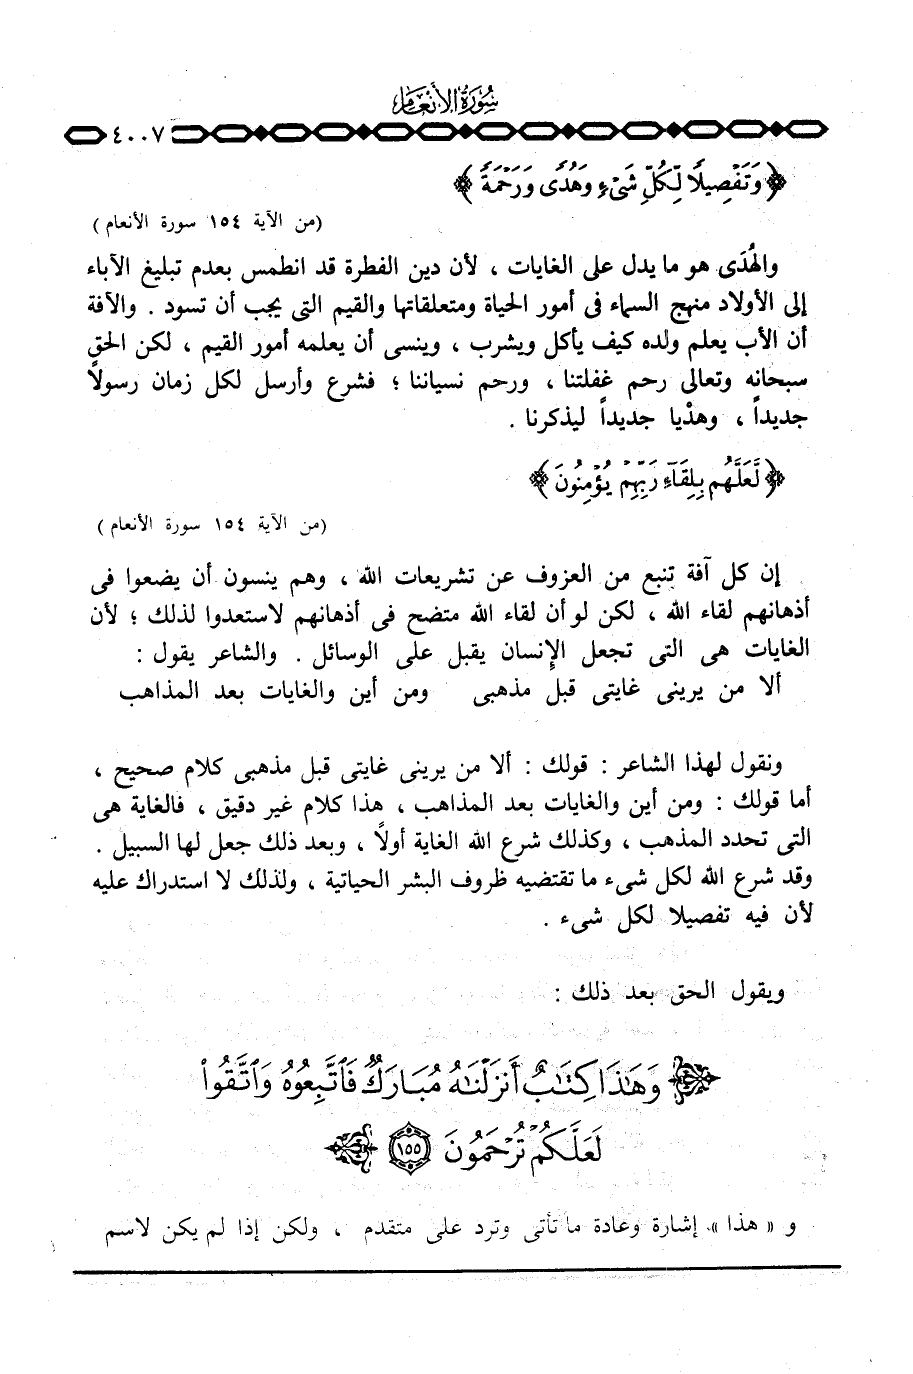 سورة الأنعام
٤٠٠٧
﴿ وَتَفْصِيلًا لِّكُلِّ شَيْءٍ وَهُدًى وَرَحْمَةً ﴾
(من الآية ١٥٤ سورة الأنعام)
والهُدَى هو ما يدل على الغايات ، لأن دين الفطرة قد انطمس بعدم تبليغ الآباء
إلى الأولاد منهج السماء فى أمور الحياة ومتعلقاتها والقيم التى يجب أن تسود . والآفة
أن الأب يعلم ولده كيف يأكل ويشرب ، وينسى أن يعلمه أمور القيم ، لكن الحق
سبحانه وتعالى رحم غفلتنا ، ورحم نسياننا ؛ فشرع وأرسل لكل زمان رسولاً
جديداً ، وهدْيا جديداً ليذكرنا .
﴿ لَّعَلَّهُم بِلِقَآءِ رَبِّهِمْ يُؤْمِنُونَ ﴾
(من الآية ١٥٤ سورة الأنعام)
إن كل آفة تنبع من العزوف عن تشريعات الله ، وهم ينسون أن يضعوا فى
أذهانهم لقاء الله ، لكن لو أن لقاء الله متضح فى أذهانهم لاستعدوا لذلك ؛ لأن
الغايات هى التى تجعل الإنسان يقبل على الوسائل . والشاعر يقول :
ألا من يرينى غايتى قبل مذهبى ومن أين والغايات بعد المذاهب
ونقول لهذا الشاعر : قولك : ألا من يرينى غايتى قبل مذهبى كلام صحيح ،
أما قولك : ومن أين والغايات بعد المذاهب ، هذا كلام غير دقيق ، فالغاية هى
التى تحدد المذهب ، وكذلك شرع الله الغاية أولًا ، وبعد ذلك جعل لها السبيل .
وقد شرع الله لكل شىء ما تقتضيه ظروف البشر الحياتية ، ولذلك لا استدراك عليه
لأن فيه تفصيلا لكل شىء .
ويقول الحق بعد ذلك :
وَهَٰذَا كِتَٰبٌ أَنزَلْنَٰهُ مُبَارَكٌ فَٱتَّبِعُوهُ وَٱتَّقُوا۟
لَعَلَّكُمْ تُرْحَمُونَ ١٥٥
و « هذا » إشارة وعادة ما تأتى وترد على متقدم ، ولكن إذا لم يكن لاسم